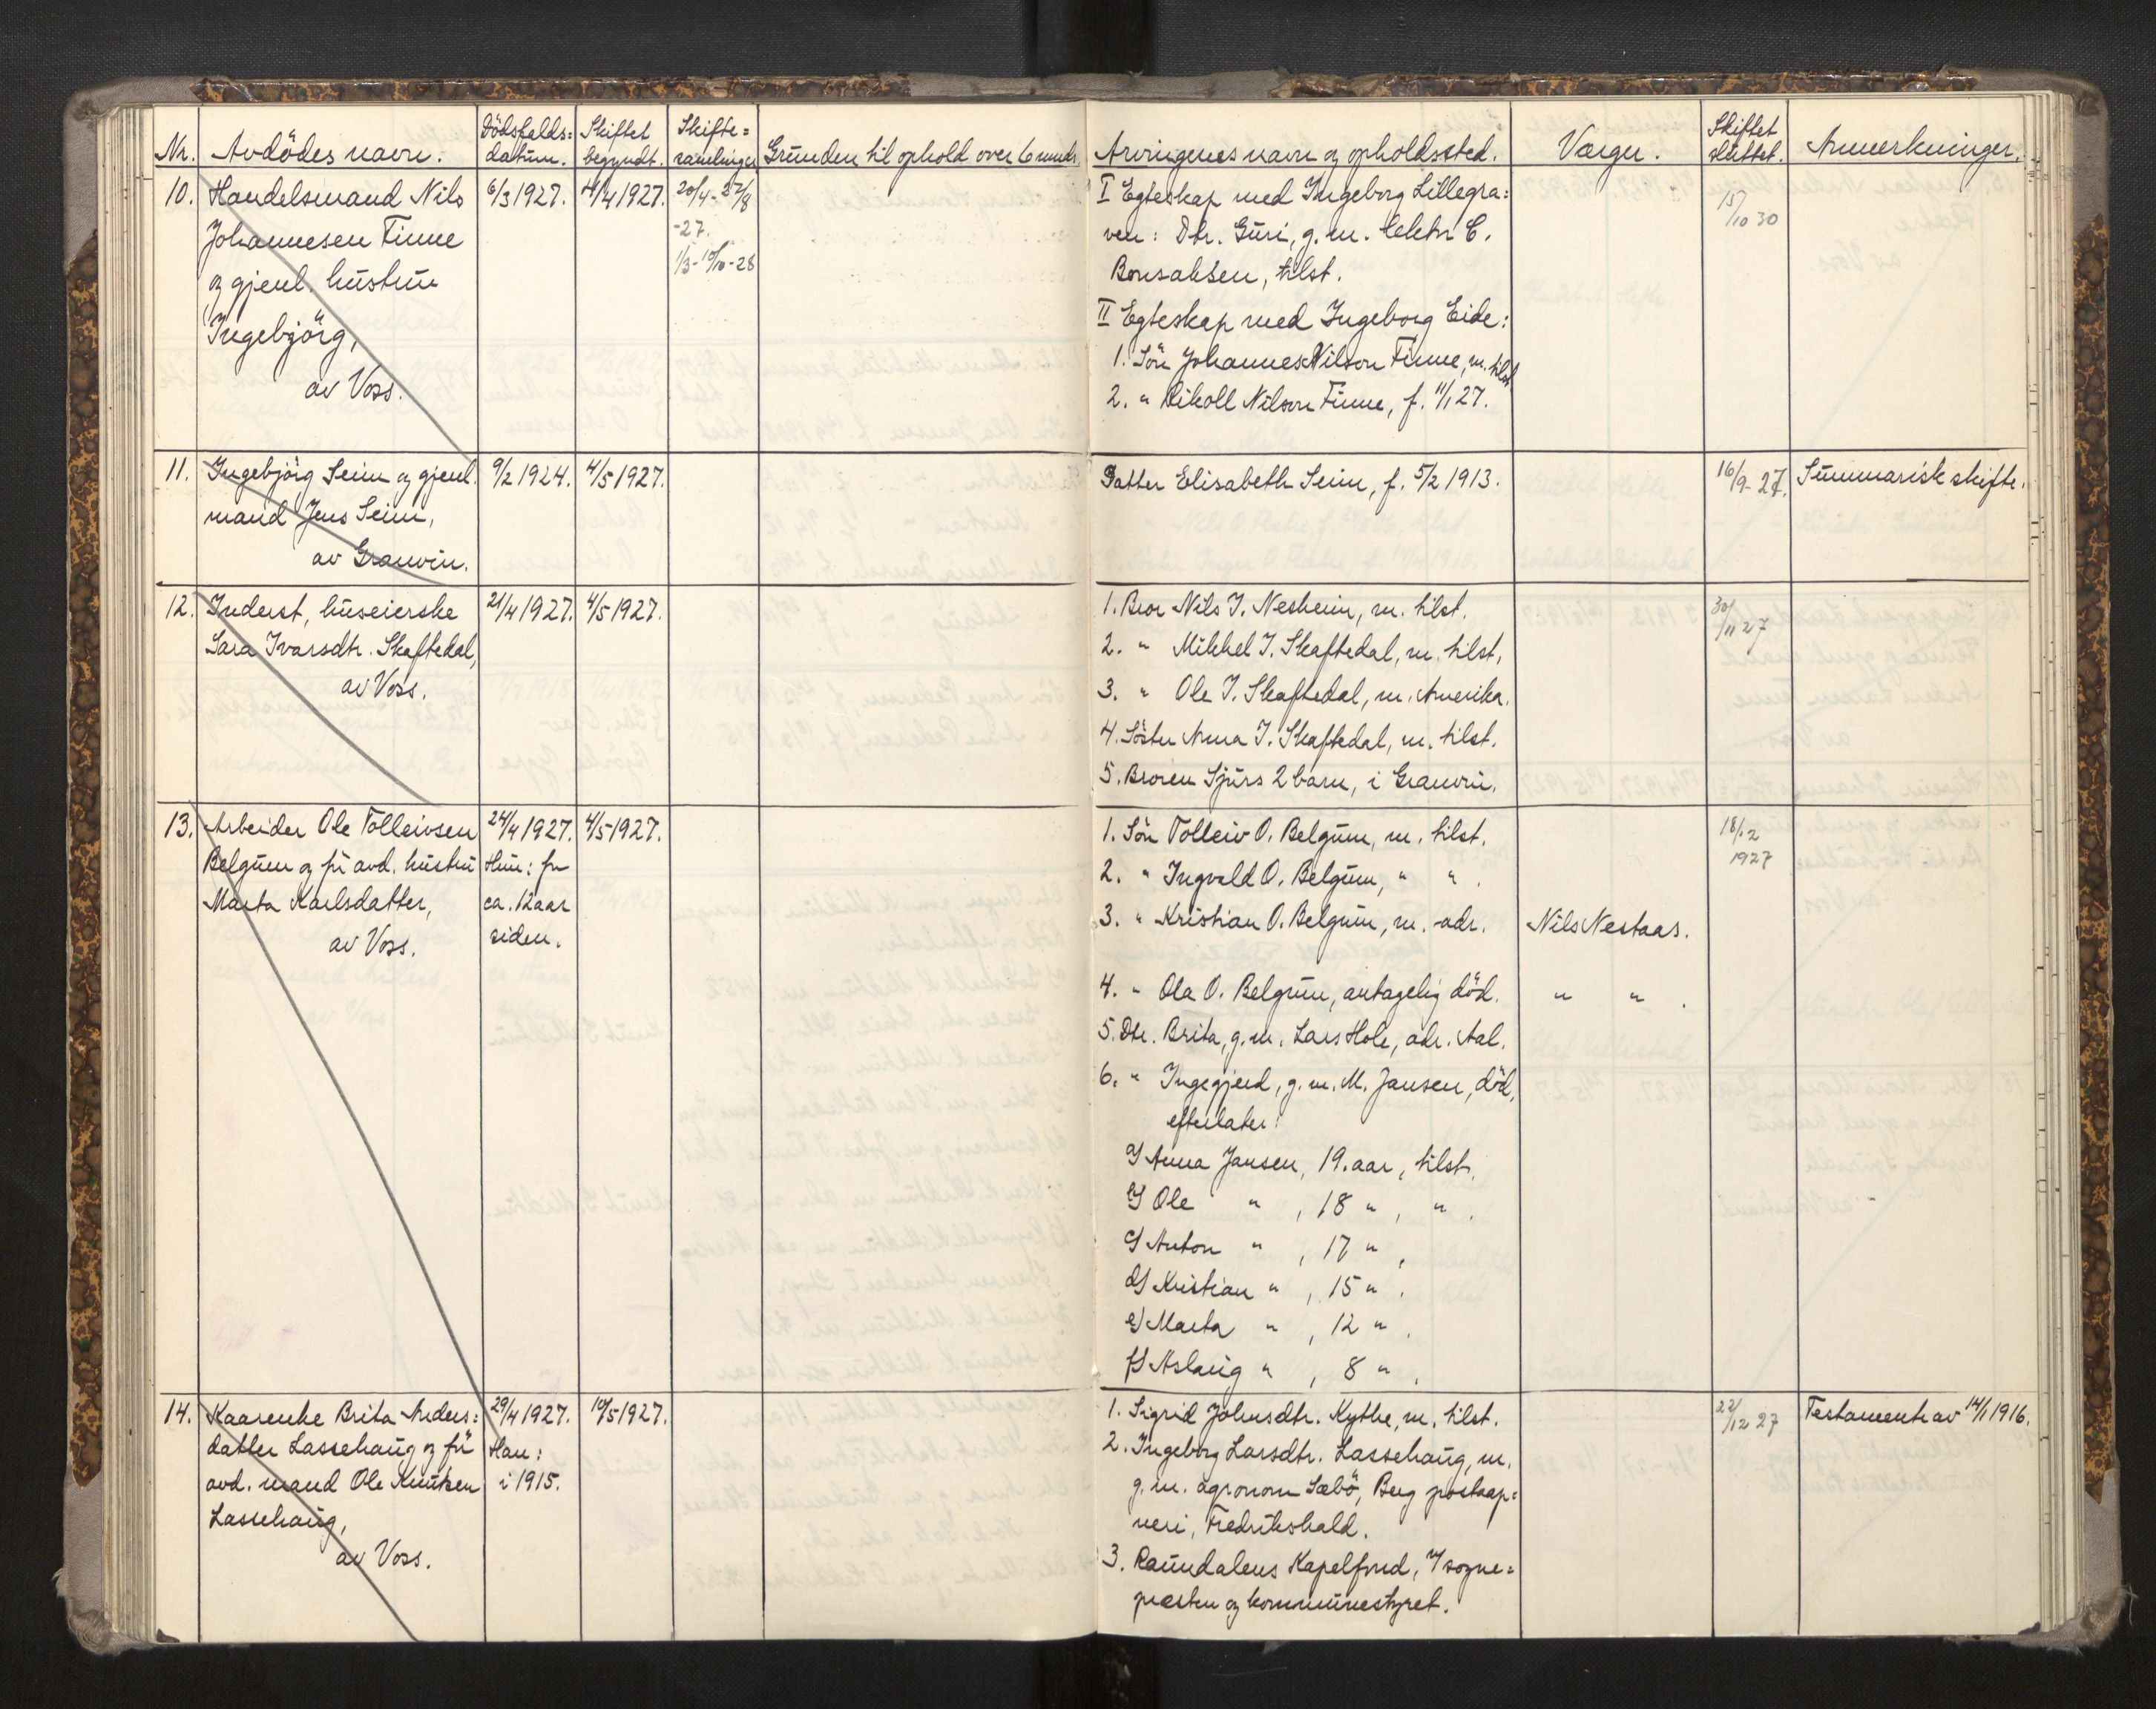 Nr. Avdödes navn. Dödsfalds= datum. Skiftet begyndt. Skifte= samlinger Grunden til ophold over 6 mndr. Arvingenes navn og opholdssted. Værger. Skiftet sluttet. Anmerkninger.
10. Handelsmand Nils 6/3 1927. 4/4 1927. 20/4 - 27/8
Johannesen Finne -27.
og gjenl. hustru 1/3 - 10/10 - 28
Ingebjörg,
av Voss.
I Egteskap med Ingeborg Lillegra= 15/10 30
ven: Dtr. Guri, g. m. lektor C.
Bonsaksen, tilst.
II Egteskap med Ingeborg Eide:
1. Sön Johannes Nilson Finne, m. tilst
2. " Rikoll Nilson Finne, f. 11/1 27.
11. Ingebjörg Seim og gjenl. 9/2 1924. 4/5 1927.
mand Jens Seim,
av Granvin.
Datter Elisabeth Seim, f. 5/2 1913. 16/9 - 27. Summarisk skifte.
12. Inderst, huseierske 21/4 1927. 4/5 1927.
Sara Ivarsdtr. Skaftedal,
av Voss.
1. Bror Nils I. Nesheim, m. tilst. 30/11 27
2. " Mikkel I. Skaftedal, m. tilst,
3. " Ole I. Skaftedal, m. Amerika.
4. Söster Anna I. Skaftedal, m. tilst.
5. Broren Sjurs 2 barn, i Granvin.
13. Arbeider Ole Tolleivsen 24/4 1927. 4/5 1927.
Belgum og fr avd. hustru Hun: for
Marta Karlsdatter, ca. 12 aar
av Voss. siden.
1. Sön Tolleiv O. Belgum, m. tilst. 18/12
2. " Ingvald O. Belgum, " " . 1927
3. " Kristian O. Belgum, m. adr. Nils Nestaas.
4. " Ola O. Belgum, antagelig död. " " .
5. Dtr. Brita, g. m. Lars Hole, adr. Aal.
6. " Ingegjerd, g. m. M. Jansen, död,
efterlater:
a) Anna Jansen, 19. aar, tilst.
b) Ole " , 18 " , " .
c) Anton " , 17 " ,
d) Kristian " , 15 " .
e) Marta " , 12 " .
f) Aslaug " , 8 " .
14. Kaarenke Brita Anders= 29/4 1927. 10/5 1927.
datter Lassehaug og fr Han:
avd. mand Ole Knutsen i 1915.
Lassehaug,
av Voss.
1. Sigrid Johnsdtr. Kythe, m. tilst. 22/12 27 Testament av 14/1 1916.
2. Ingeborg Larsdtr. Lassehaug, m.
g. m. agronom Sæbö, Berg postaap=
neri, Fredrikshald.
3. Raundalens Kapelfond, v/ sogne=
presten og kommunestyret.